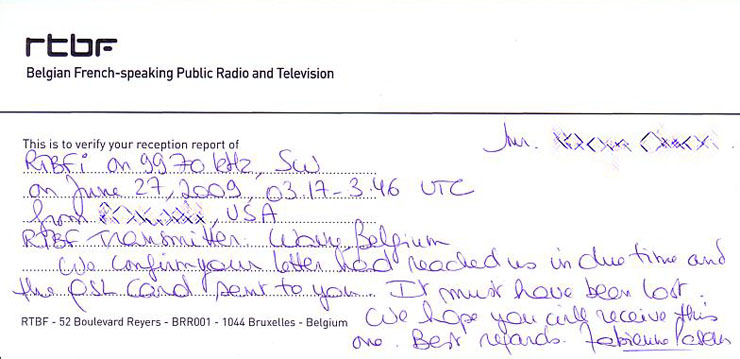 rtbf
Belgian French-speaking Public Radio and Television
This is to verify your reception report of
Mr.
RTBFi on 9970 kHz, SW
on June 27, 2009, 03.17-3.46 UTC
from , USA
RTBF Transmitter: Wavre, Belgium
We confirm your letter had reached us in due time and
the QSL card sent to you. It must have been lost.
We hope you will receive this
one. Best regards. Fabienne
RTBF - 52 Boulevard Reyers - BRR001 - 1044 Bruxelles - Belgium